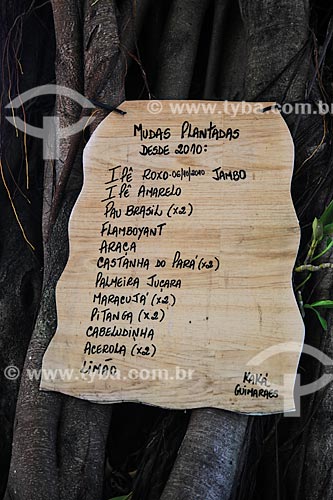 www.tyba.com.br
MUDAS PLANTADAS
DESDE 2010:
IPÊ ROXO-06/10/2010 JAMBO
IPÊ AMARELO
PAU BRASIL (x2)
FLAMBOYANT
ARAÇA
CASTANHA DO PARÁ (x2)
PALMEIRA JUÇARA
MARACUJÁ (x2)
PITANGA (x2)
CABELUDINHA
ACEROLA (x2)
LIMÃO
www.tyba.com.br
KAKÁ
GUIMARAES